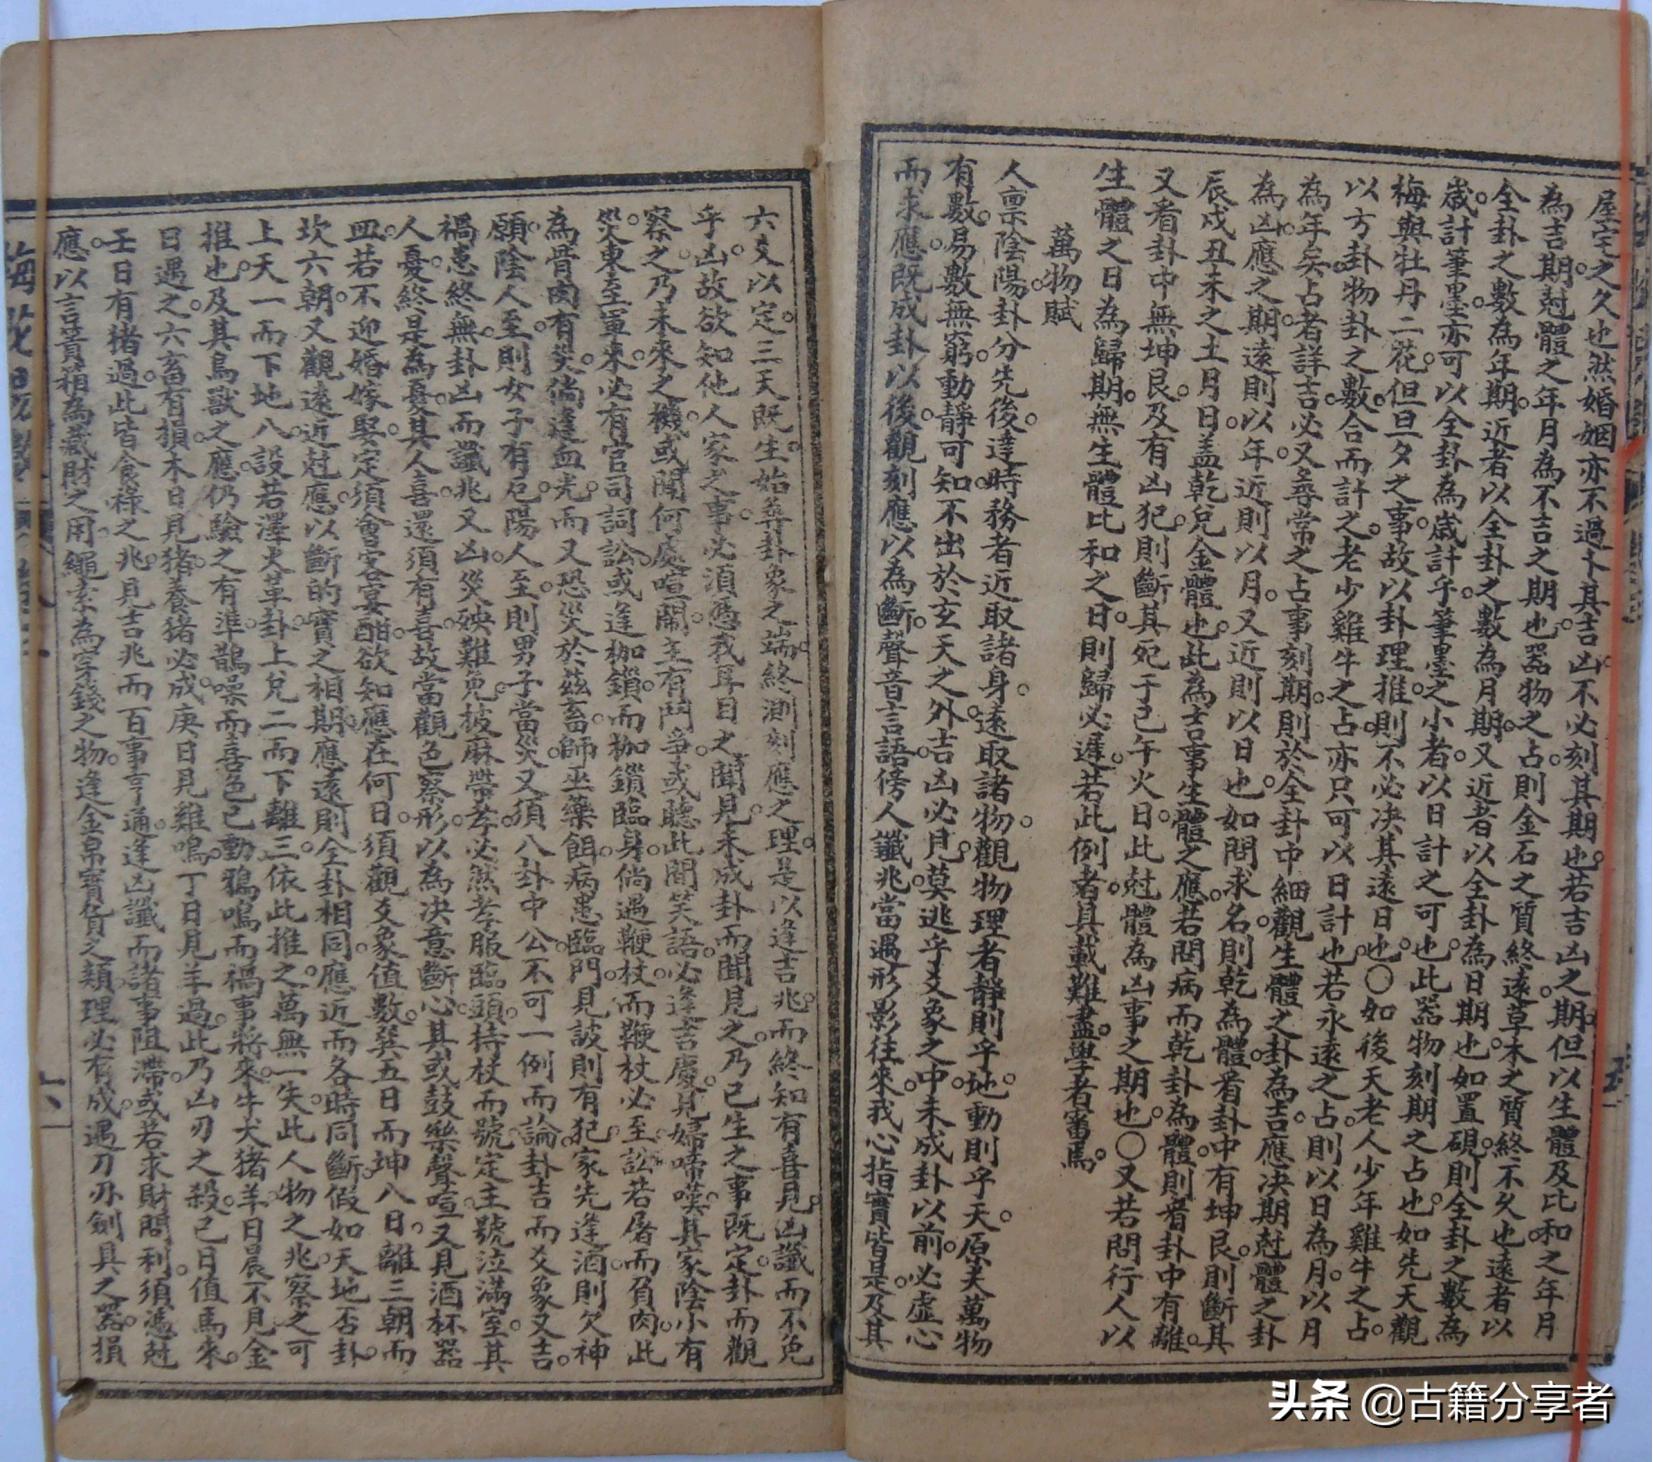 屋宅之久也然婚姻亦不過卜其吉凶不必刻其期也若吉凶之期但以生體及比和之年月
為吉期尅體之年月為不吉之期也器物之占則金石之質終遠草木之質終不久也遠者以
全卦之數為年期近者以全卦之數為月期又近者以全卦為日期也如置硯則全卦之數為
歲計筆墨亦可以全卦為歲計乎筆墨之小者以日計之可也此器物刻期之占也如先天觀
梅與牡丹二花但旦夕之事故以卦理推則不必决其遠日也〇如後天老人少年雞牛之占
以方卦物卦之數合而計之老少雞牛之占亦只可以日計也若永遠之占則以日為月以月
為年矣占者詳吉必又尋常之占事刻期則於全卦中細觀生體之卦為吉應决期尅體之卦
為凶應之期遠則以年近則以月又近則以日也如問求名則乾為體看卦中有坤艮則斷其
辰戌丑未之土月日盖乾兌金體也此為吉事生體之應若問病而乾卦為體則看卦中有離
又看卦中無坤艮及有凶犯則斷其死于巳午火日此尅體為凶事之期也〇又若問行人以
生體之日為歸期無生體比和之日則歸必遲若此例者具載難盡學者審焉
萬物賦
人禀陰陽卦分先後達時務者近取諸身遠取諸物觀物理者靜則乎地動則乎天原夫萬物
有數易數無窮動靜可知不出於玄天之外吉凶必見莫逃乎爻象之中未成卦以前必虛心
而求應既成卦以後觀刻應以為斷聲音言語傍人讖兆當遇形影往來我心指實皆是及其
六爻以定三天既生始尋卦象之端終測刻應之理是以逢吉兆而終知有喜見凶讖而不免
乎凶故欲知他人家之事必須憑我耳目之聞見未成卦而聞見之乃已生之事既定卦而觀
察之乃未來之機或聞何處喧鬧主有鬥爭或聽此間笑語必逢吉慶見婦啼嘆其家陰小有
災東至軍來必有官司詞訟或逢枷鎖而枷鎖臨身倘遇鞭杖而鞭杖必至訟若屠而負肉此
為骨肉有災倘逢血光而又恐災於茲畜師巫藥餌病患臨門見詖則有犯家先逢酒則欠神
願陰人至則女子有厄陽人至則男子當災又須八卦中公不可一例而論卦吉而爻象又吉
禍患終無卦凶而讖兆又凶災殃難免披麻帶孝必然孝服臨頭持杖而號定主號泣滿室其
人憂終是為憂其人喜還須有喜故當觀色察形以為决意斷心其或鼓樂聲喧又見酒杯器
皿若不迎婚嫁娶定須會客宴酣欲知應在何日須觀爻象值數巽五日而坤八日離三朝而
坎六朝又觀遠近尅應以斷的實之相期應遠則全卦相同應近而各時同斷假如天地否卦
上天一而下地八設若澤火革卦上兌二而下離三依此推之萬無一失此人物之兆察之可
推也及其鳥獸之應仍驗之有準鵲噪而喜色已動鴉鳴而禍事將來牛犬猪羊日晨不見金
日遇之六畜有損木日見猪養猪必成庚日見雞鳴丁日見羊過此乃凶刃之殺已日值馬來
壬日有猪過此皆食祿之兆見吉兆而百事亨通逢凶讖而諸事阻滯或若求財問利須憑尅
應以言蕢箱為藏財之用繩索為穿錢之物逢金帛寶貨之類理必有成遇刀刃劍具之器損
六
頭条 @古籍分享者